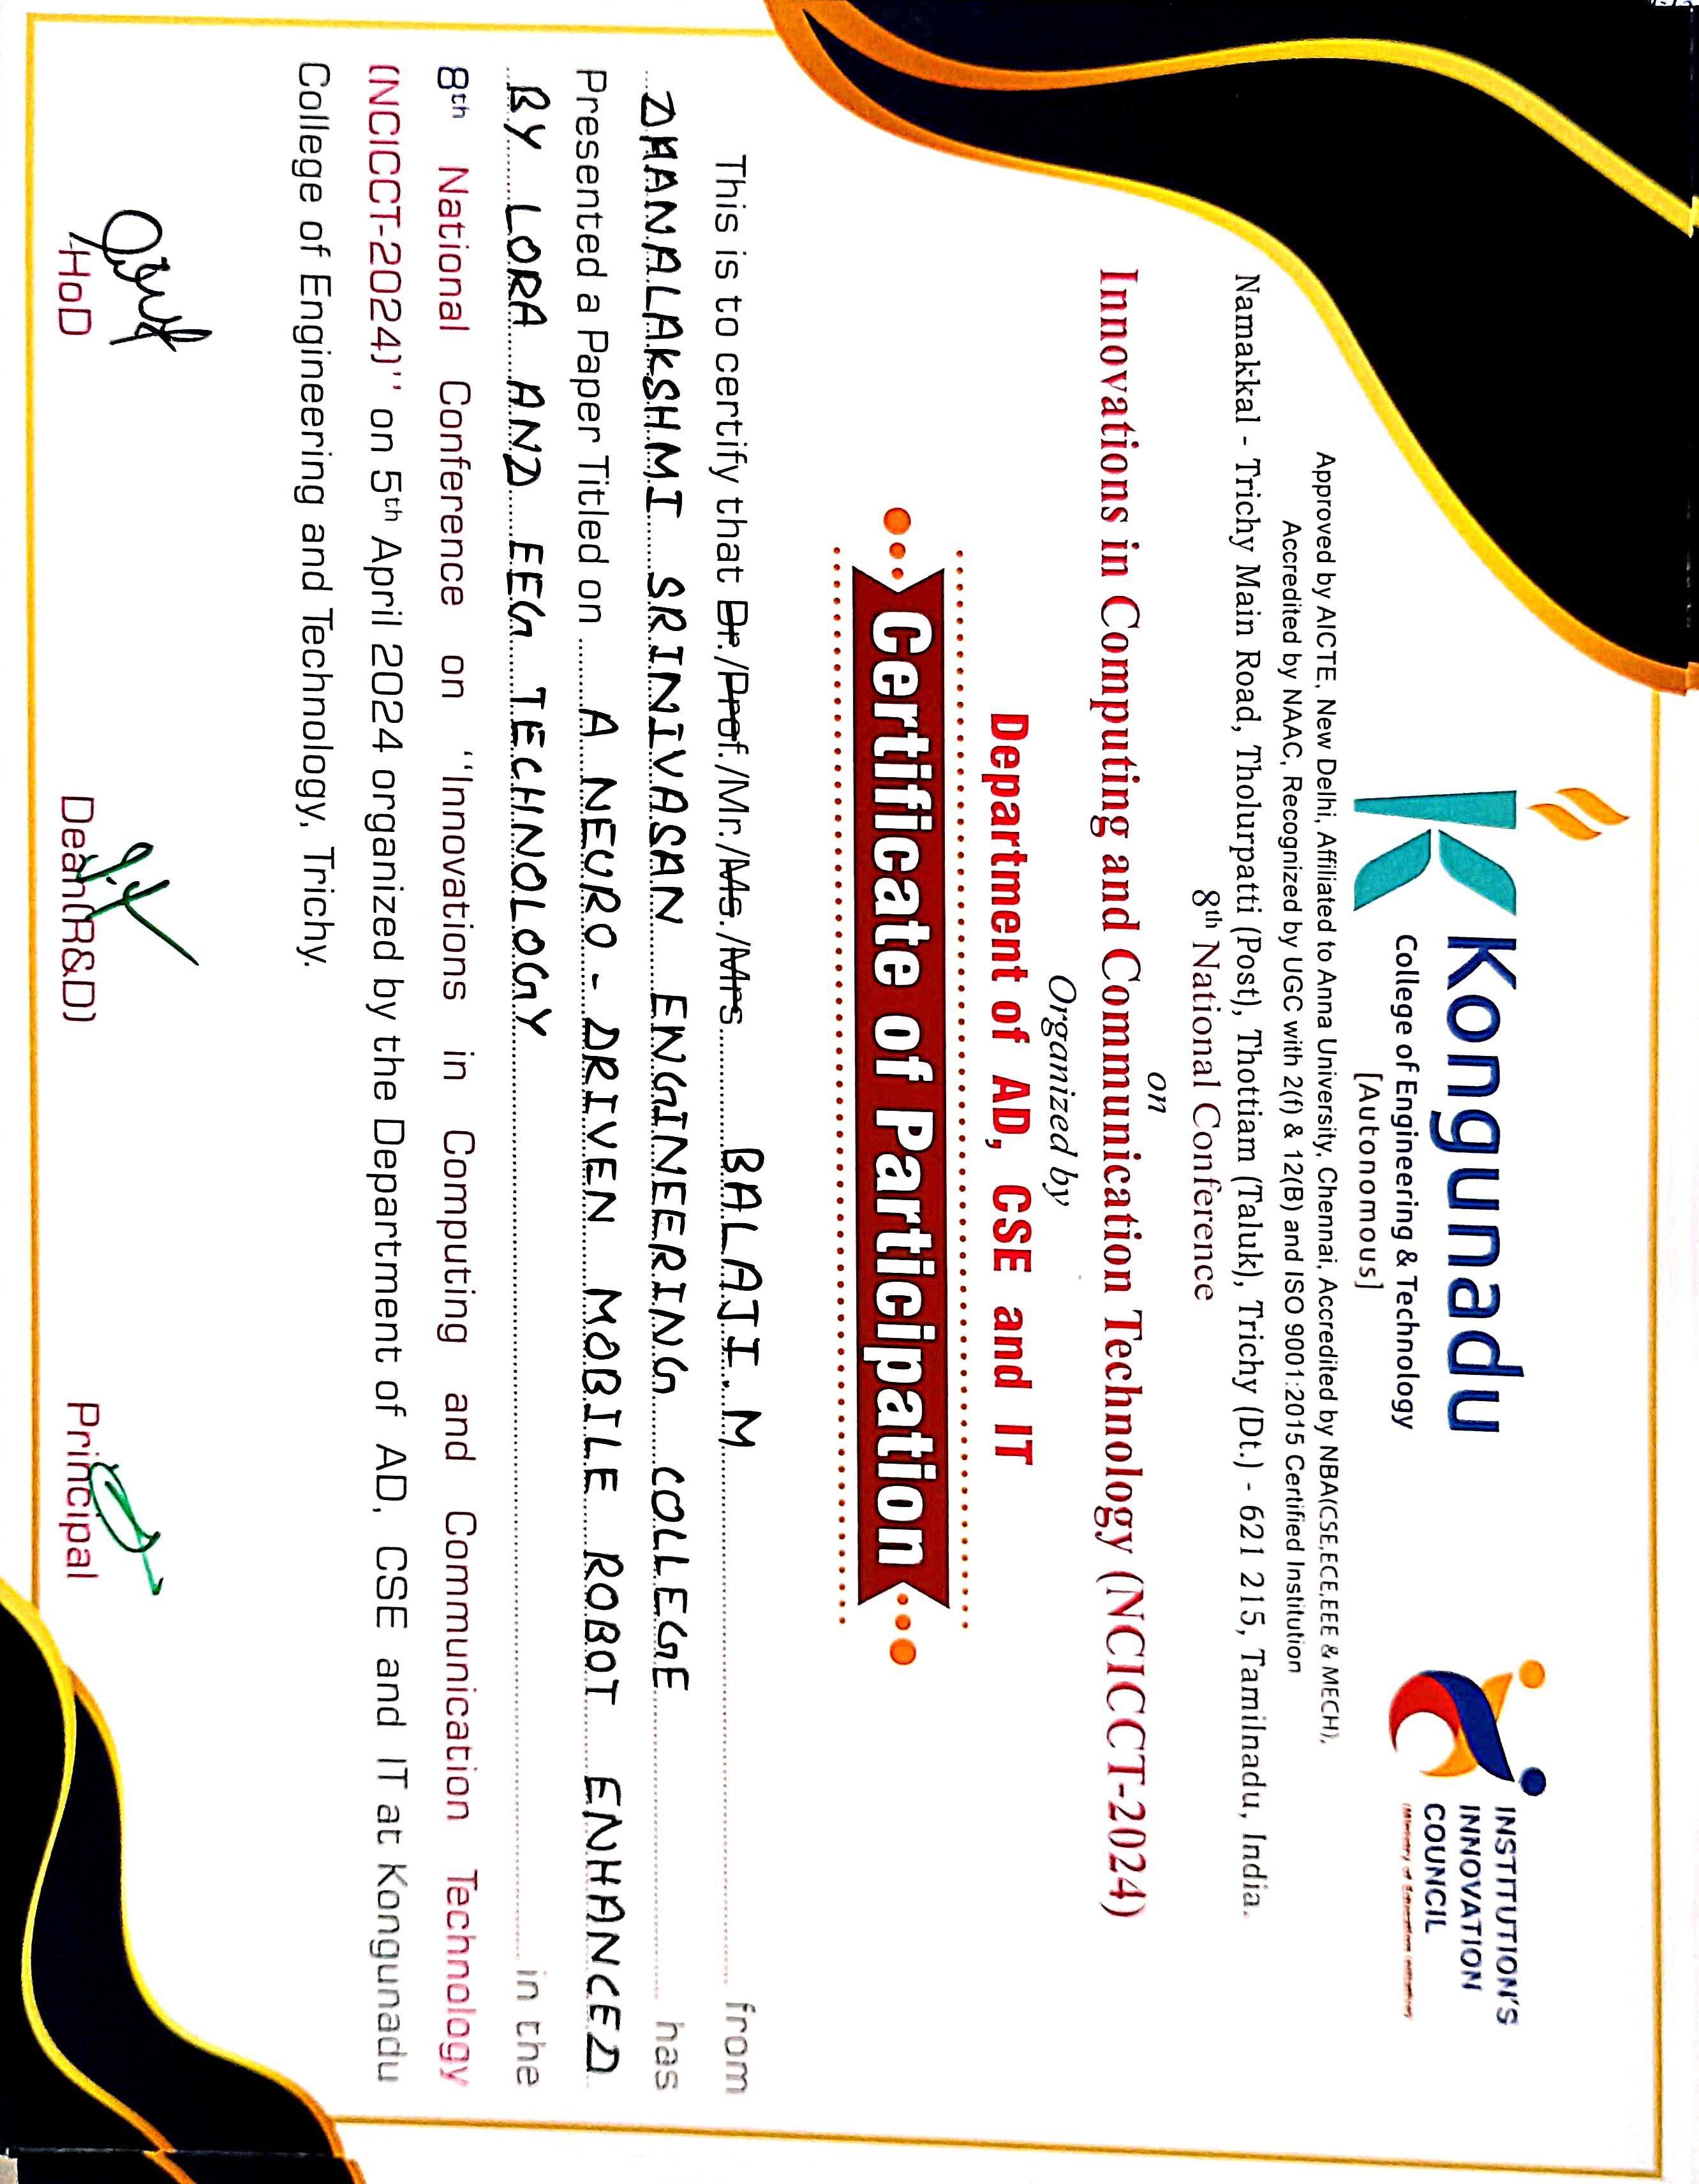 Kongunadu
College of Engineering & Technology
[Autonomous]
INSTITUTION'S
INNOVATION
COUNCIL
(Ministry of Education Initiative)
Approved by AICTE, New Delhi, Affiliated to Anna University, Chennai, Accredited by NBA(CSE,ECE,EEE & MECH),
Accredited by NAAC, Recognized by UGC with 2(f) & 12(B) and ISO 9001:2015 Certified Institution
Namakkal - Trichy Main Road, Tholurpatti (Post), Thottiam (Taluk), Trichy (Dt.) - 621 215, Tamilnadu, India.
8th National Conference
on
Innovations in Computing and Communication Technology (NCICCT-2024)
Organized by
Department of AD, CSE and IT
Certificate of Participation
This is to certify that Dr./Prof./Mr./Ms./Mrs. BALAJI.M from
DHANALAKSHMI SRINIVASAN ENGINEERING COLLEGE has
Presented a Paper Titled on A NEURO - DRIVEN MOBILE ROBOT ENHANCED
BY LORA AND EEG TECHNOLOGY in the
8th National Conference on "Innovations in Computing and Communication Technology
(NCICCT-2024)" on 5th April 2024 organized by the Department of AD, CSE and IT at Kongunadu
College of Engineering and Technology, Trichy.
HoD
Dean(R&D)
Principal